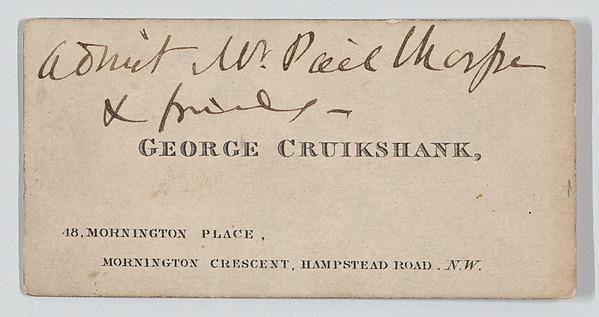 Admit Mr. Pailthorpe
& friends –
GEORGE CRUIKSHANK,
48, MORNINGTON PLACE,
MORNINGTON CRESCENT, HAMPSTEAD ROAD. N.W.